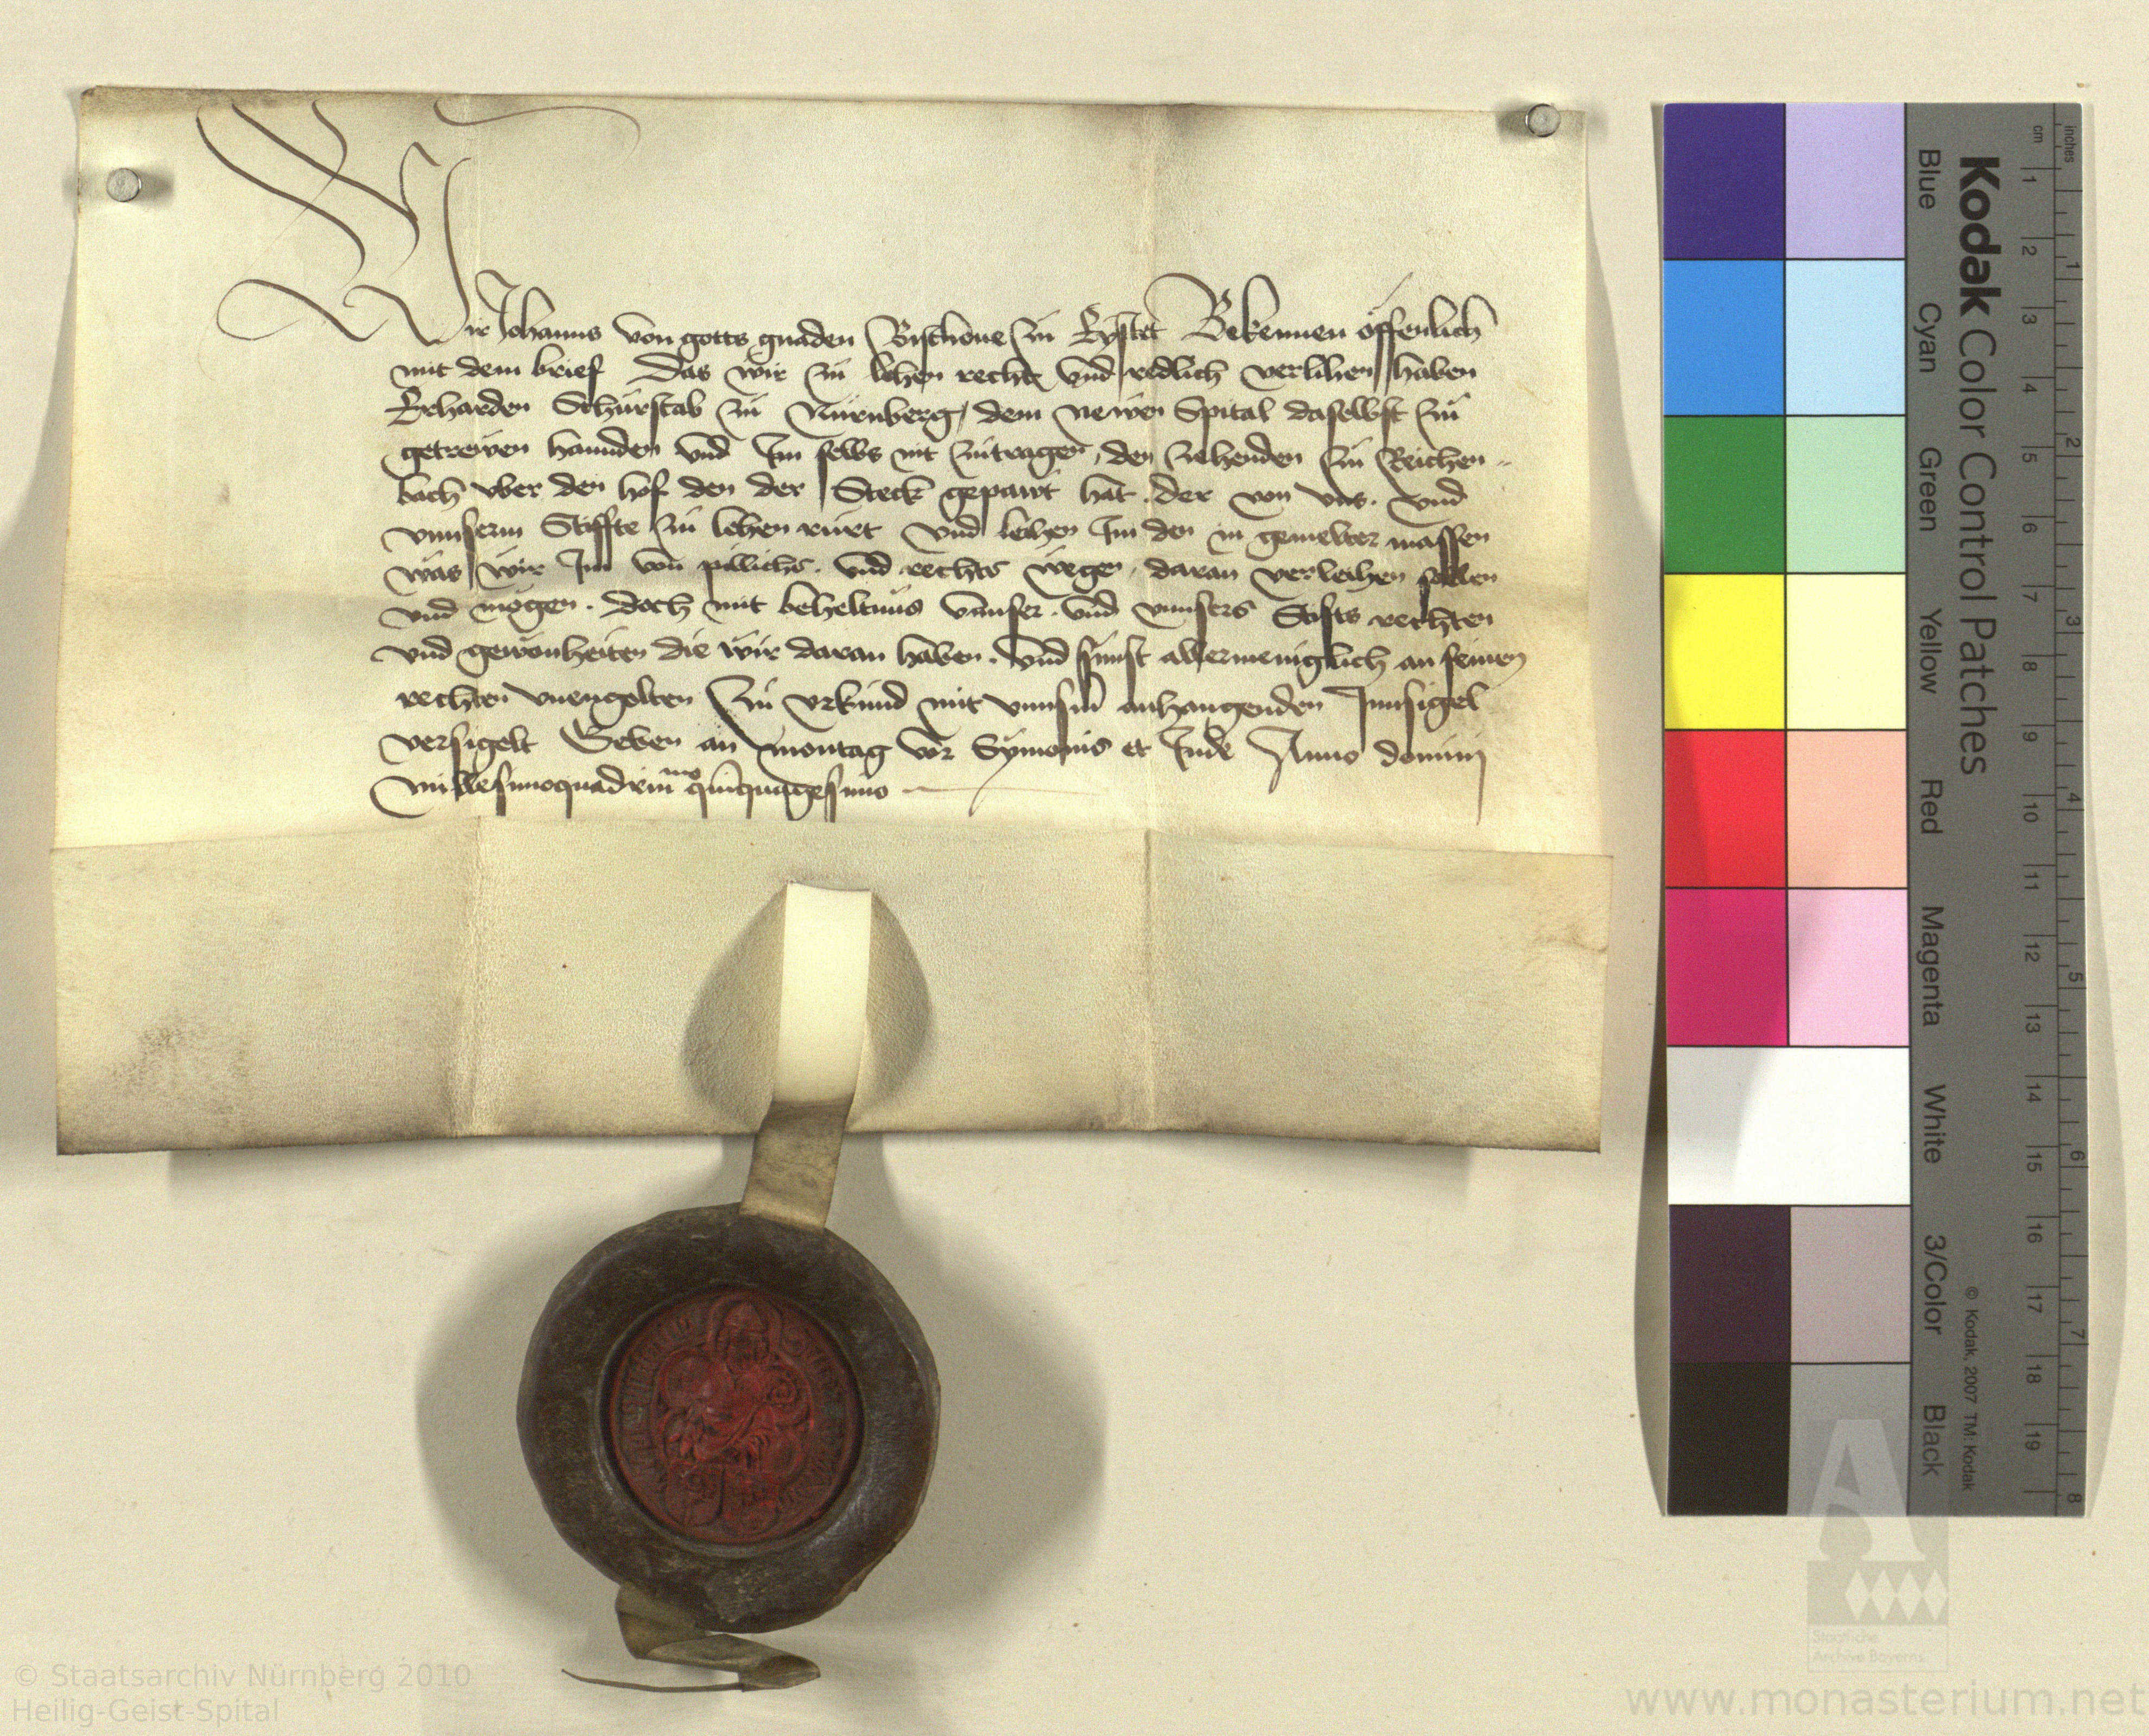 Wir Johanns von gotts gnaden Bischoue zu Eystet Bekennen offenlich
mit dem brief Das wir zu lehen recht vnd redlich verlihen haben
Erharden Schürstab zu Nüremberg, dem newen Spital daselbst zu
getrewen hannden vnd Im selbs nit zutragen, den zehenden zu Reichen-
bach vber den hof den der Steck gepawt hat. der von vns. vnd
vnnserm Stiffte zu lehen rürt vnd leihen Im den in gemelter massen
was wir Im von pillichs. vnd rechts wegen. daran verleihen sollen
vnd mögen. doch mit beheltnüs vnnser. vnd vnnsers Stifts rechten
vnd gewonheiten die wir daran haben. vnd sunst allermeniglich an seinen
rechten vnengolten Zu vrkund mit vnnsm anhangenden Innsigel
versigelt Geben an montag vor Symonis et Jude Anno domini
millesimoquadrinmo quinquagesimo
Kodak Color Control Patches
© Kodak, 2007 TM: Kodak
Blue Cyan Green Yellow Red Magenta White 3/Color Black
inches 1 2 3 4 5 6 7 8
cm 1 2 3 4 5 6 7 8 9 10 11 12 13 14 15 16 17 18 19
A
Staatliche
Archive Bayerns
© Staatsarchiv Nürnberg 2010
Heilig-Geist-Spital
www.monasterium.net